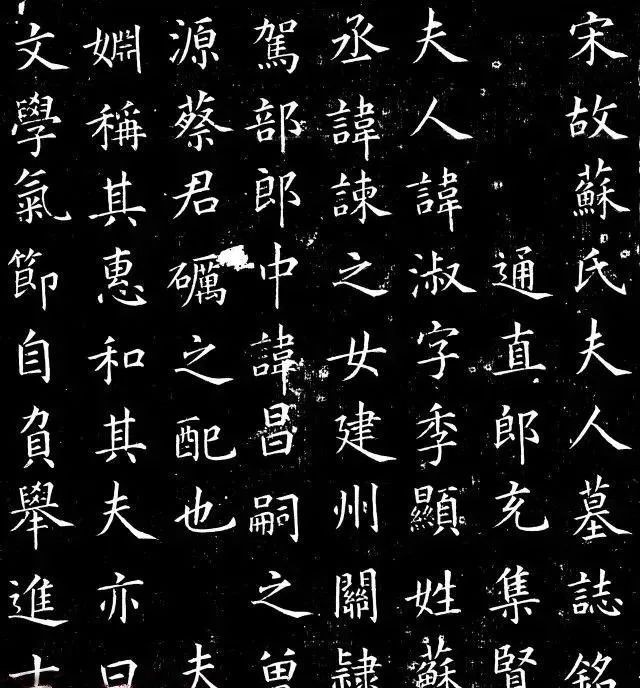 宋故蘇氏夫人墓誌銘
通直郎充集賢
夫人諱淑字季顯姓蘇
丞諱諫之女建州關隸
駕部郎中諱昌嗣之曾
源蔡君礪之配也 夫
婣稱其惠和其夫亦曰
文學氣節自負舉進士